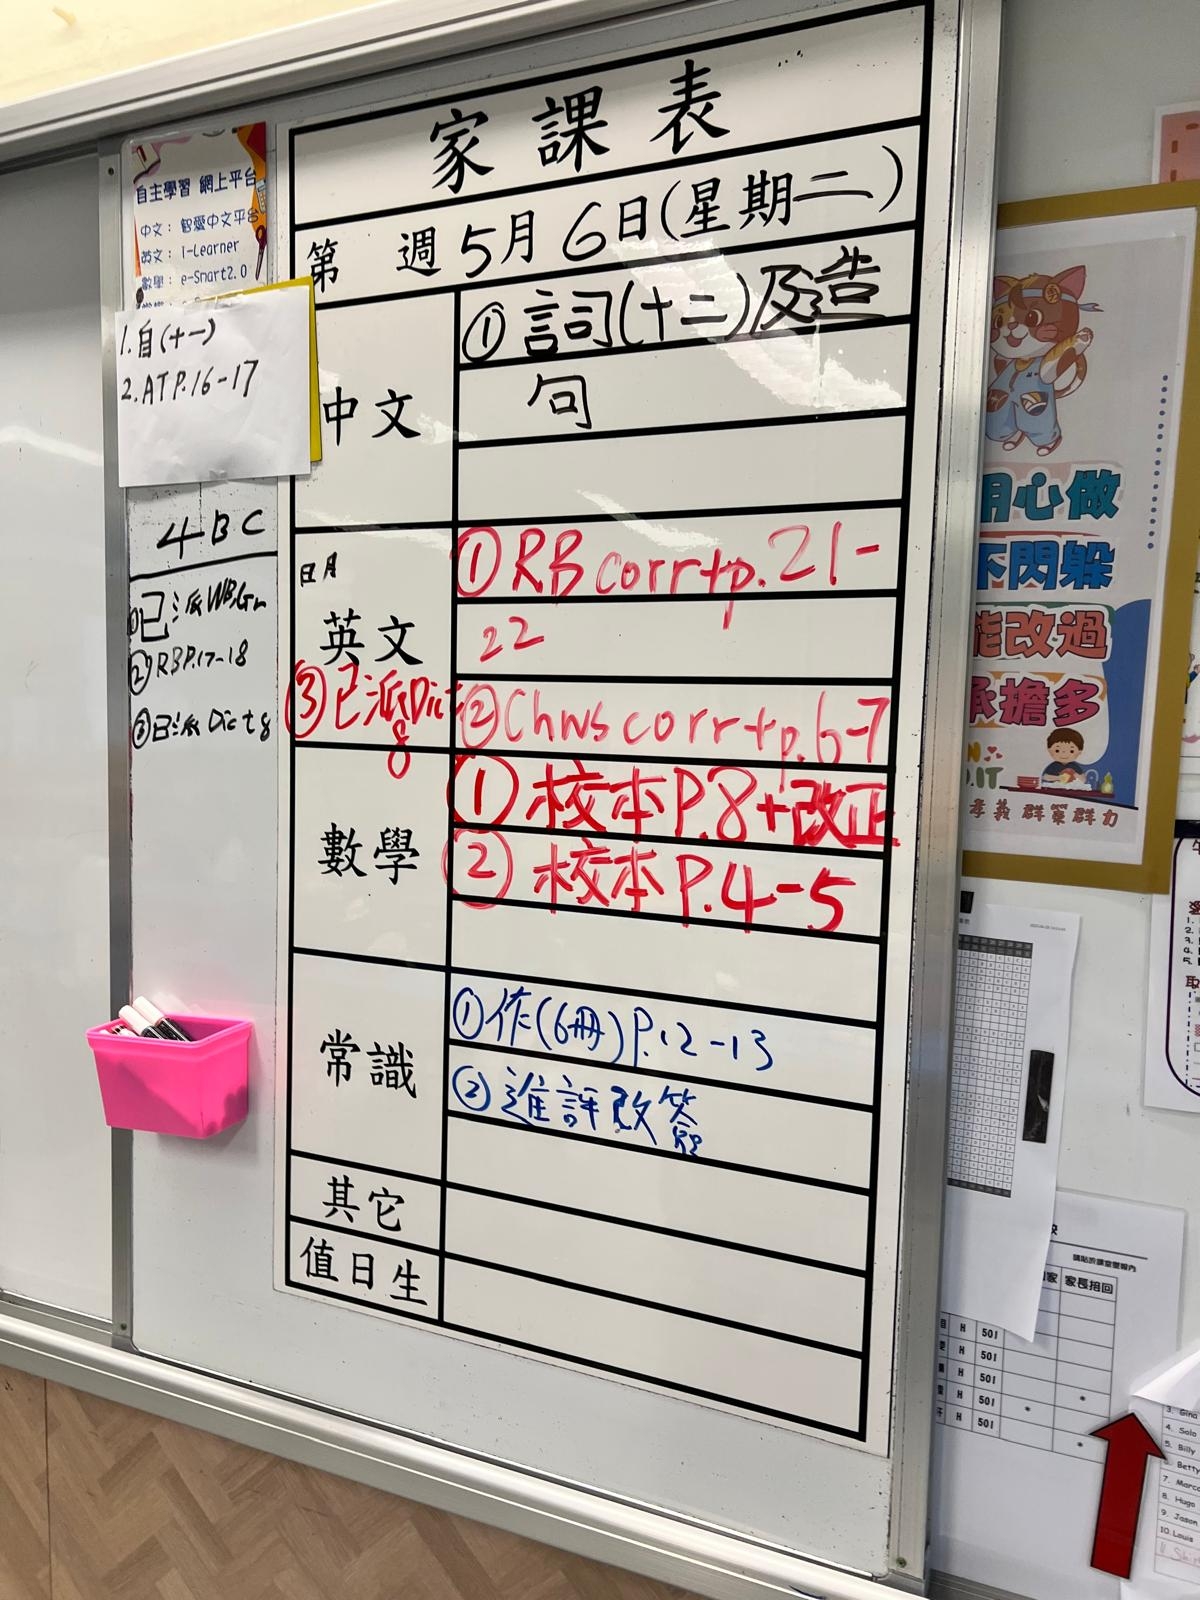 家課表
第 週 5月6日(星期二)
中文
① 詞(十二)及造
句
日月
英文
① RB corr+p.21-
22
② Chws corr+p.6-7
③ 已派Dict
8
數學
① 校本P.8+改正
② 校本P.4-5
常識
① 作(6冊)P.12-13
② 進評改簽
其它
值日生
自主學習 網上平台
中文： 智愛中文平台
英文： I-Learner
數學： e-Smart2.0
1. 自(十一)
2. AT P.16-17
4BC
① 已派WB,Gr
② RB P.17-18
③ 已派 Dict 8
用心做
不閃躲
能改過
承擔多
孝義 群策群力
請貼於課室壁報內
家長指回
H 501
H 501
H 501
H 501
H 501
3. Gina
4. Solo
5. Billy
6. Betty
7. Marco
8. Hugo
9. Jason
10. Louis